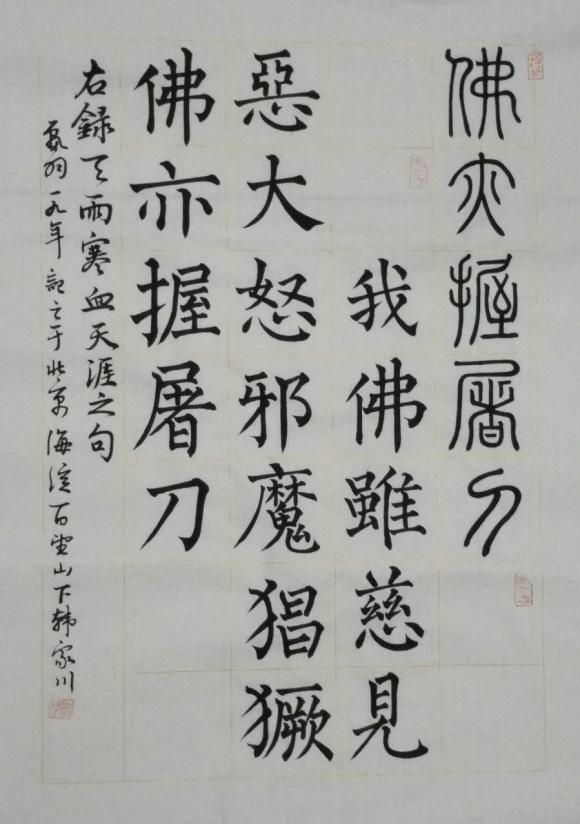 佛亦握屠刀
我佛雖慈見
惡大怒邪魔猖獗
佛亦握屠刀
右録雨寒血天涯之句
一九年記之于北京海淀百望山下韩家川